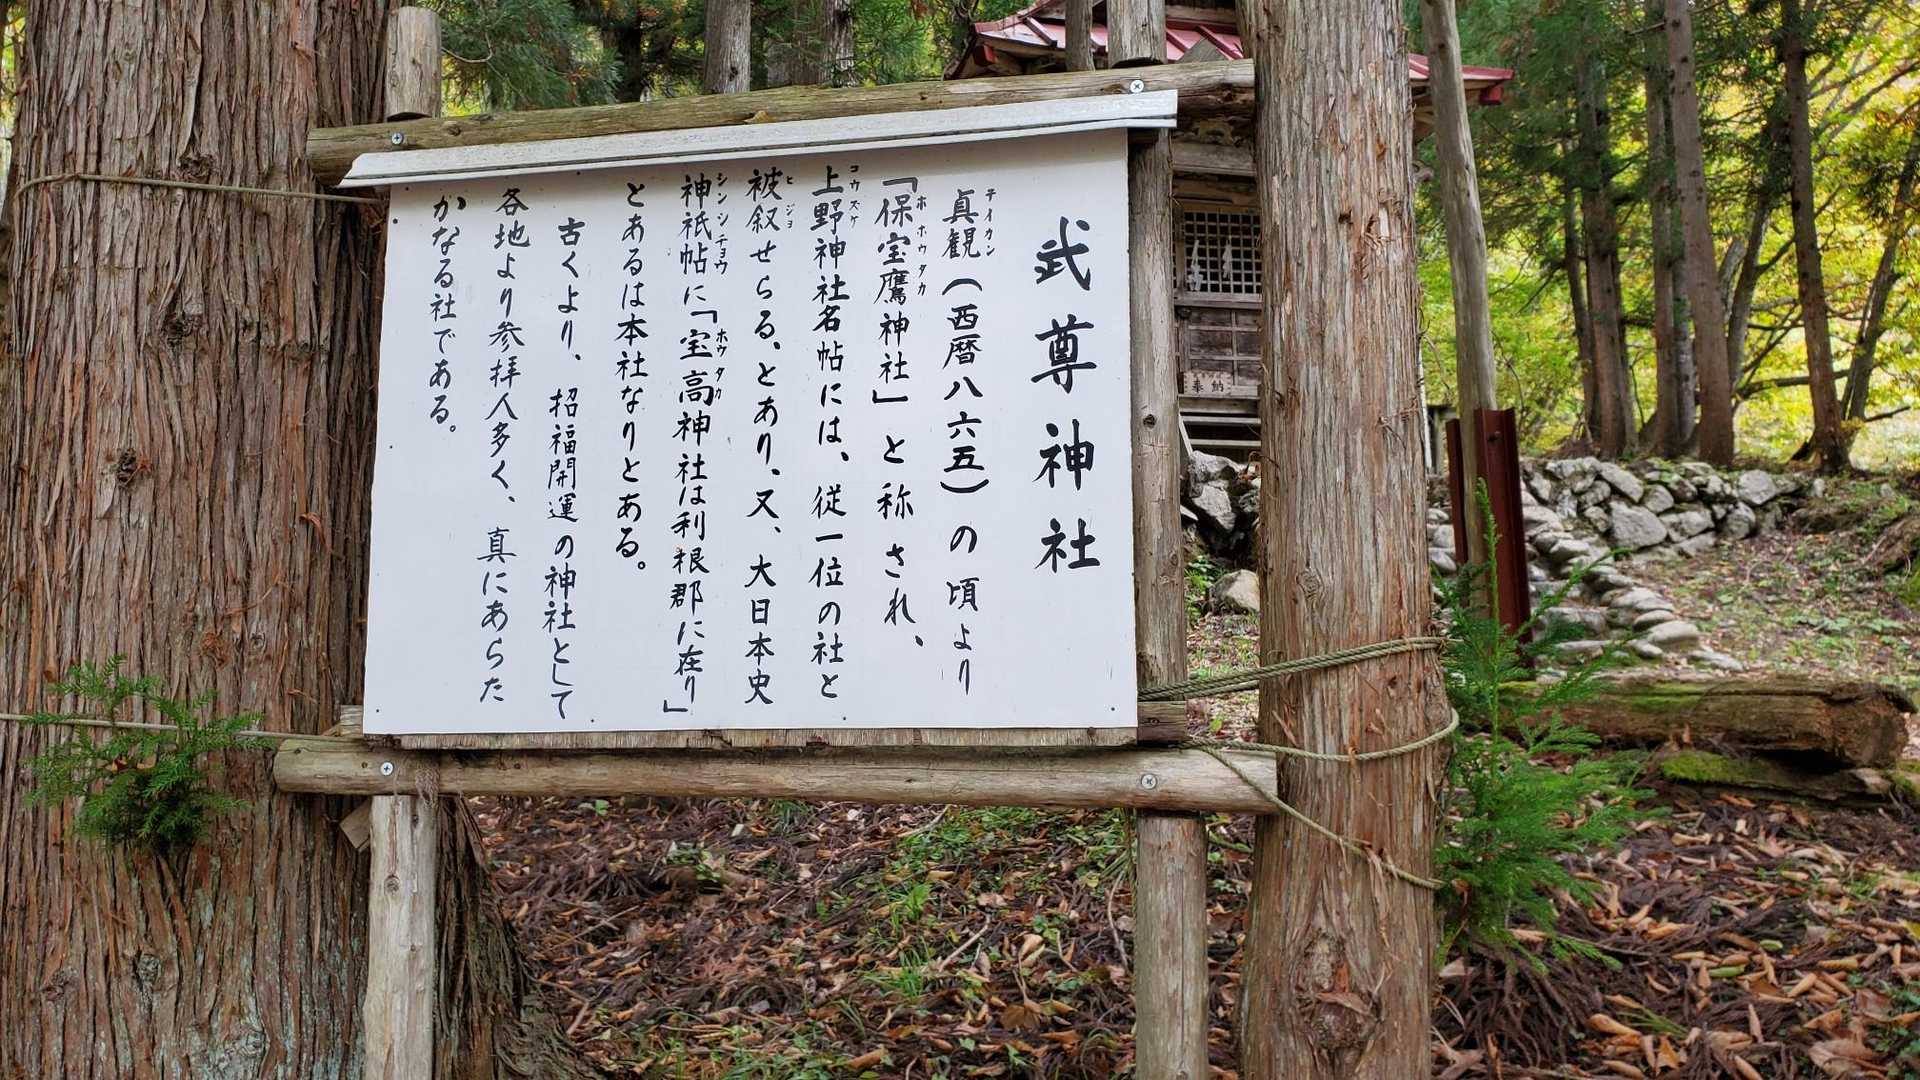 武尊神社
真観（西暦八六五）の頃より
テイカン
「保宝鷹神社」と称され、
ホホウタカ
上野神社名帖には、従一位の社と
コウズケ
被叙せらる、とあり、又、大日本史
ヒジョ
神祇帖に「宝高神社は利根郡に在り」
シンシチョウ
ホウタカ
とあるは本社なりとある。
古くより、招福開運の神社として
各地より参拝人多く、真にあらた
かなる社である。
奉納